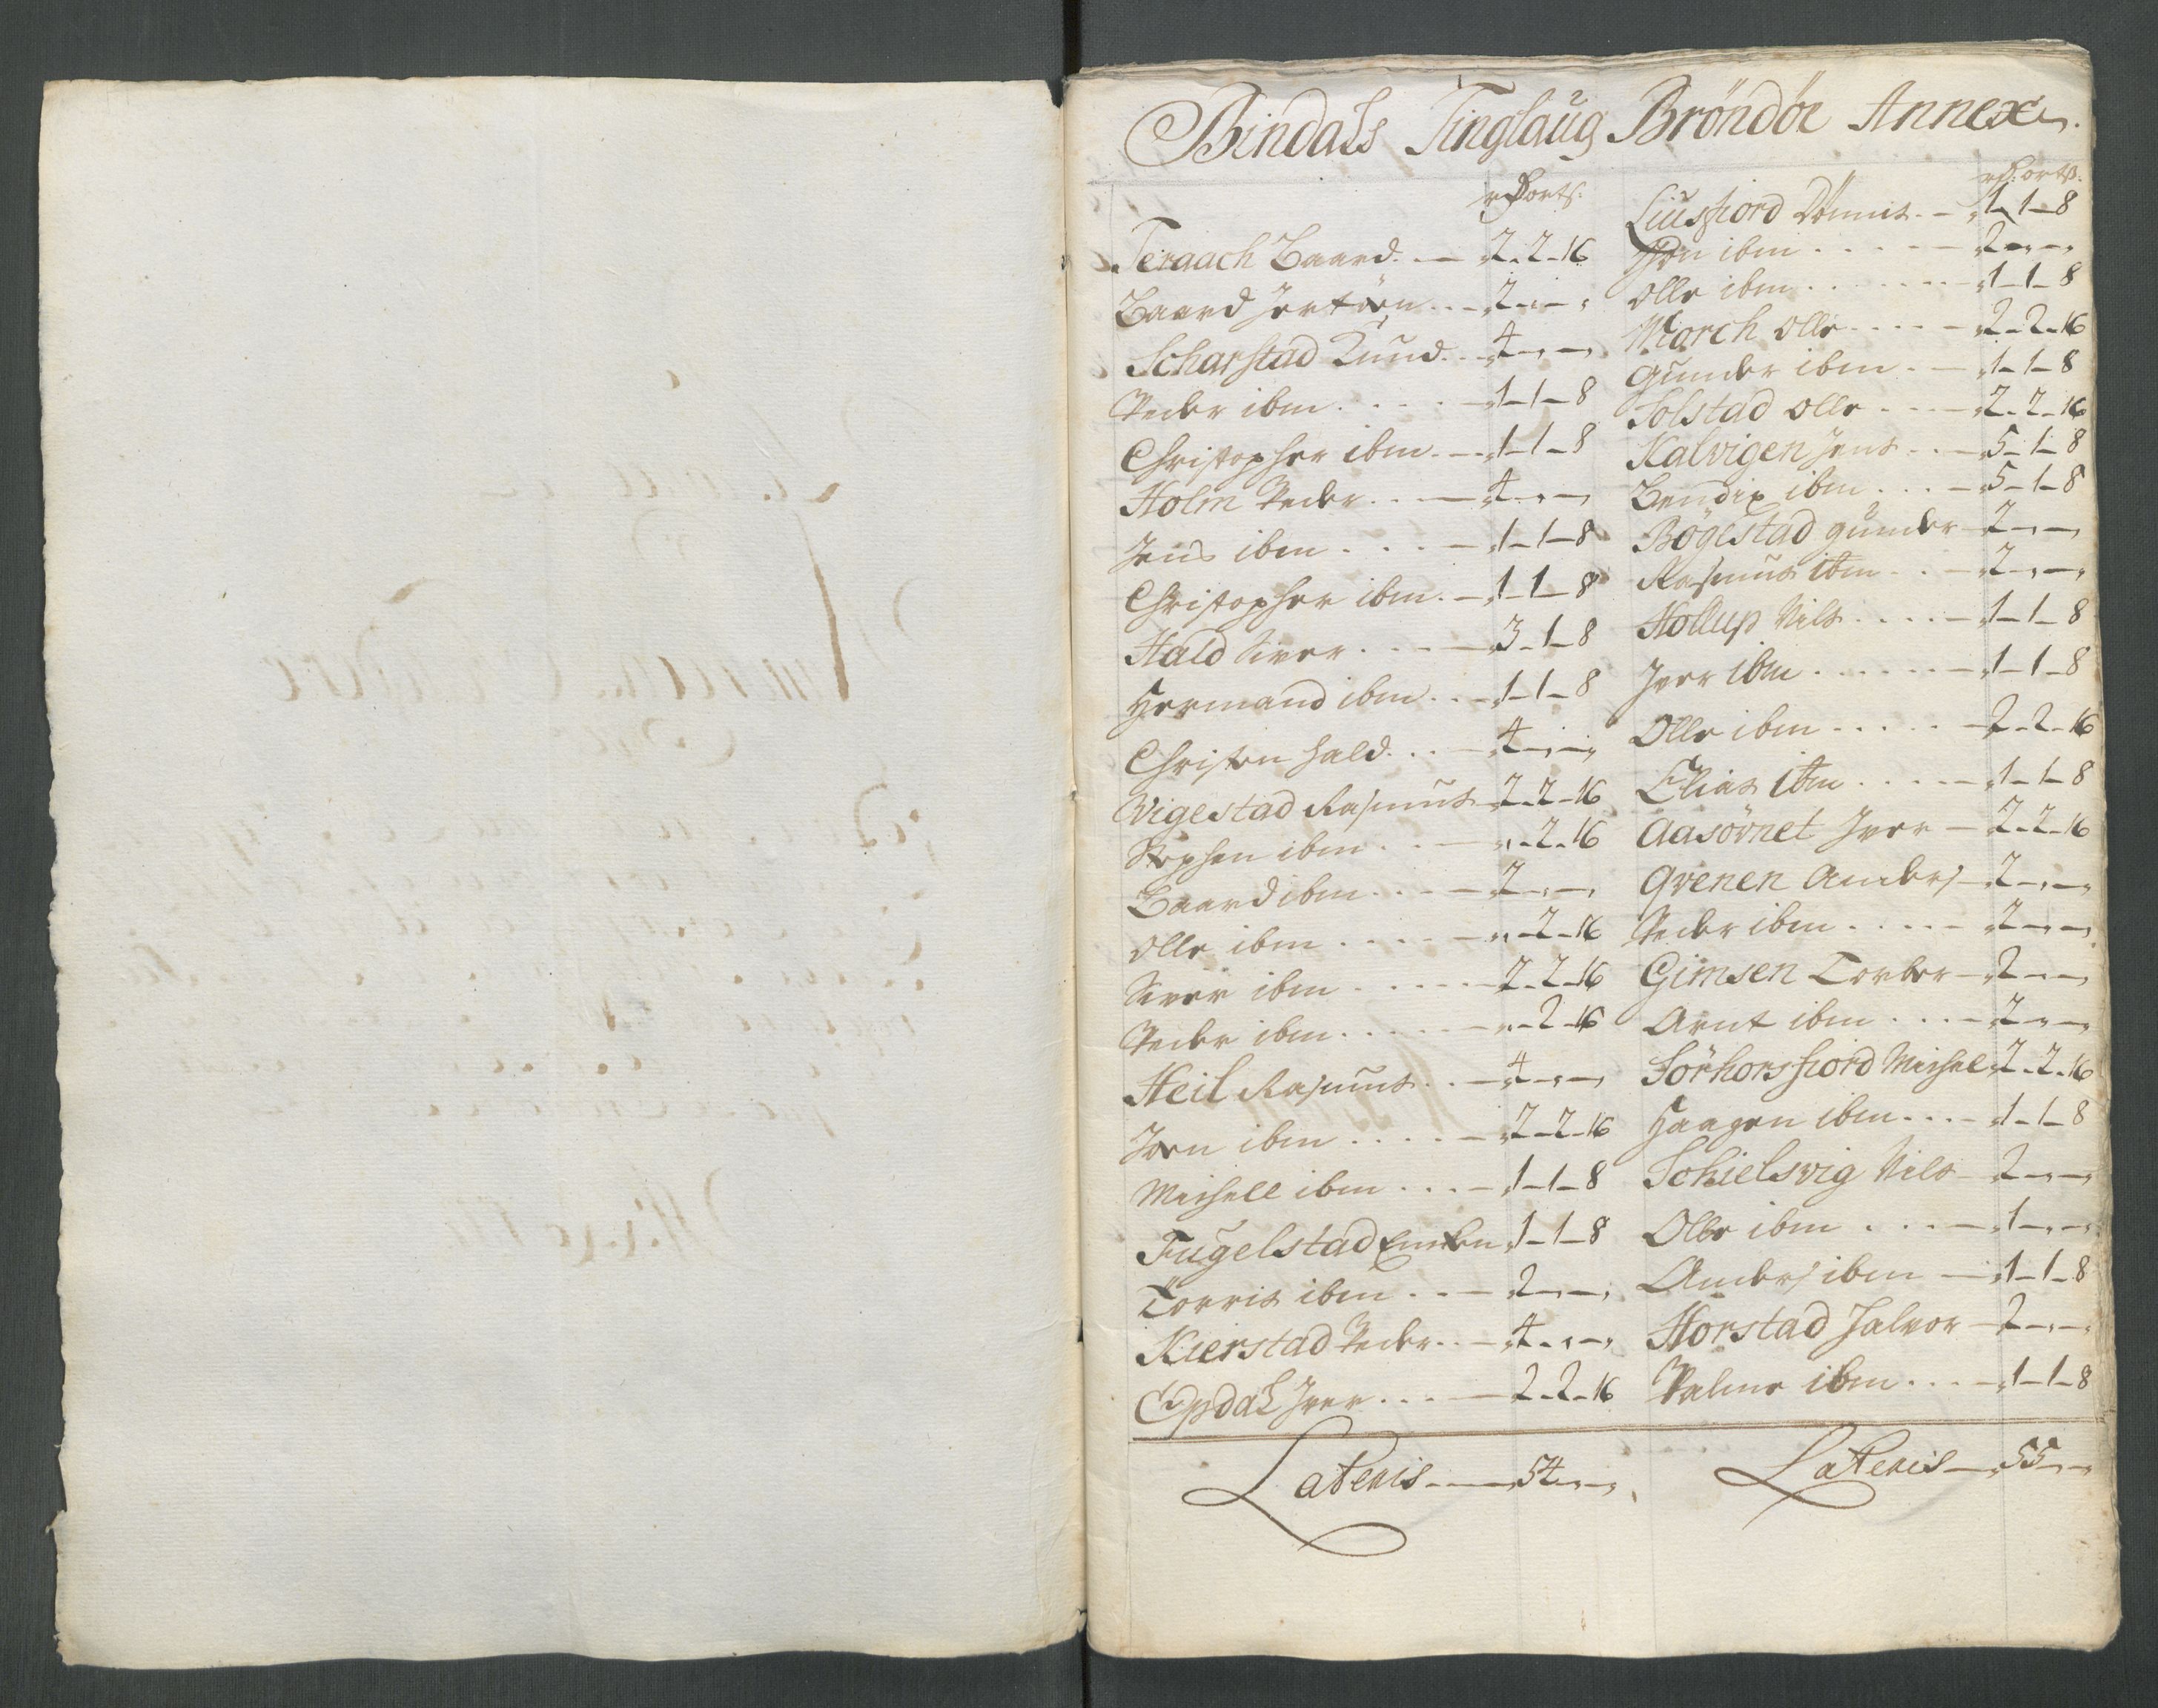 Bindals Tinglaug Bröndöe Annex
rd ort s
Teraach Baard . . — 2 - 2 - 16
Baard Jertsön . . . - 2 - „ - „
Scharstad Knud . . . 4 - „ - „
Peder ibm . . . . - 1 - 1 - 8
Christopher ibm . - . 1 - 1 - 8
Holm Peder . . . — 4 - „ - „
Jens ibm . . . . — 1 - 1 - 8
Christopher ibm . — 1 - 1 - 8
Hald Siver . . . . — 3 - 1 - 8
Hermand ibm . . . 1 - 1 - 8
Christen Hald . . . — 4 - „ - „
Vigestad Rasmus - 2 - 2 - 16
Stephen ibm . . . — „ - 2 - 16
Baard ibm . . . — 2 - „ - „
Olle ibm . . . . . — „ - 2 - 16
Siver ibm . . . . . — 2 - 2 - 16
Peder ibm . . . . . — „ - 2 - 16
Heil Rasmus . . . — 4 - „ - „
Joen ibm . . . . . — 2 - 2 - 16
Michell ibm . . . — 1 - 1 - 8
Fugelstad Enken 1 - 1 - 8
Torris ibm . . . — 2 - „ - „
Kierstad Peder . . . — 4 - „ - „
Opdal Iver . . . . — 2 - 2 - 16
Lateris — 54 - „ - „
rd ort s
Liusfiord Dönnis . . — 1 - 1 - 8
Jon ibm . . . . . — 2 - „ - „
Olle ibm . . . . . . — 1 - 1 - 8
March Olle . . . . — 2 - 2 - 16
Gunder ibm . . — 1 - 1 - 8
Solstad Olle . . . — 2 - 2 - 16
Kalvigen Jens . . . — 5 - 1 - 8
Bendix ibm . . . — 5 - 1 - 8
Bögestad Gunder — 2 - „ - „
Rasmus ibm . . . — 2 - „ - „
Hollup Nils . . . . — 1 - 1 - 8
Iver ibm . . . . . . — 1 - 1 - 8
Olle ibm . . . . . — 2 - 2 - 16
Elias ibm . . . . . — 1 - 1 - 8
Aasörnet Iver — 2 - 2 - 16
Qvenen Anders — 2 - „ - „
Peder ibm . . . . . — 2 - „ - „
Gimsen Torber — 2 - „ - „
Arnt ibm . . . . — 2 - „ - „
Sörhorsfiord Michel 2 - 2 - 16
Haagen ibm . . . . — 1 - 1 - 8
Schielsvig Nils — 2 - „ - „
Olle ibm . . . . — 1 - „ - „
Anders ibm — 1 - 1 - 8
Horstad Halvor — 2 - „ - „
Palme ibm . . . . — 1 - 1 - 8
Lateris — 55 - „ - „